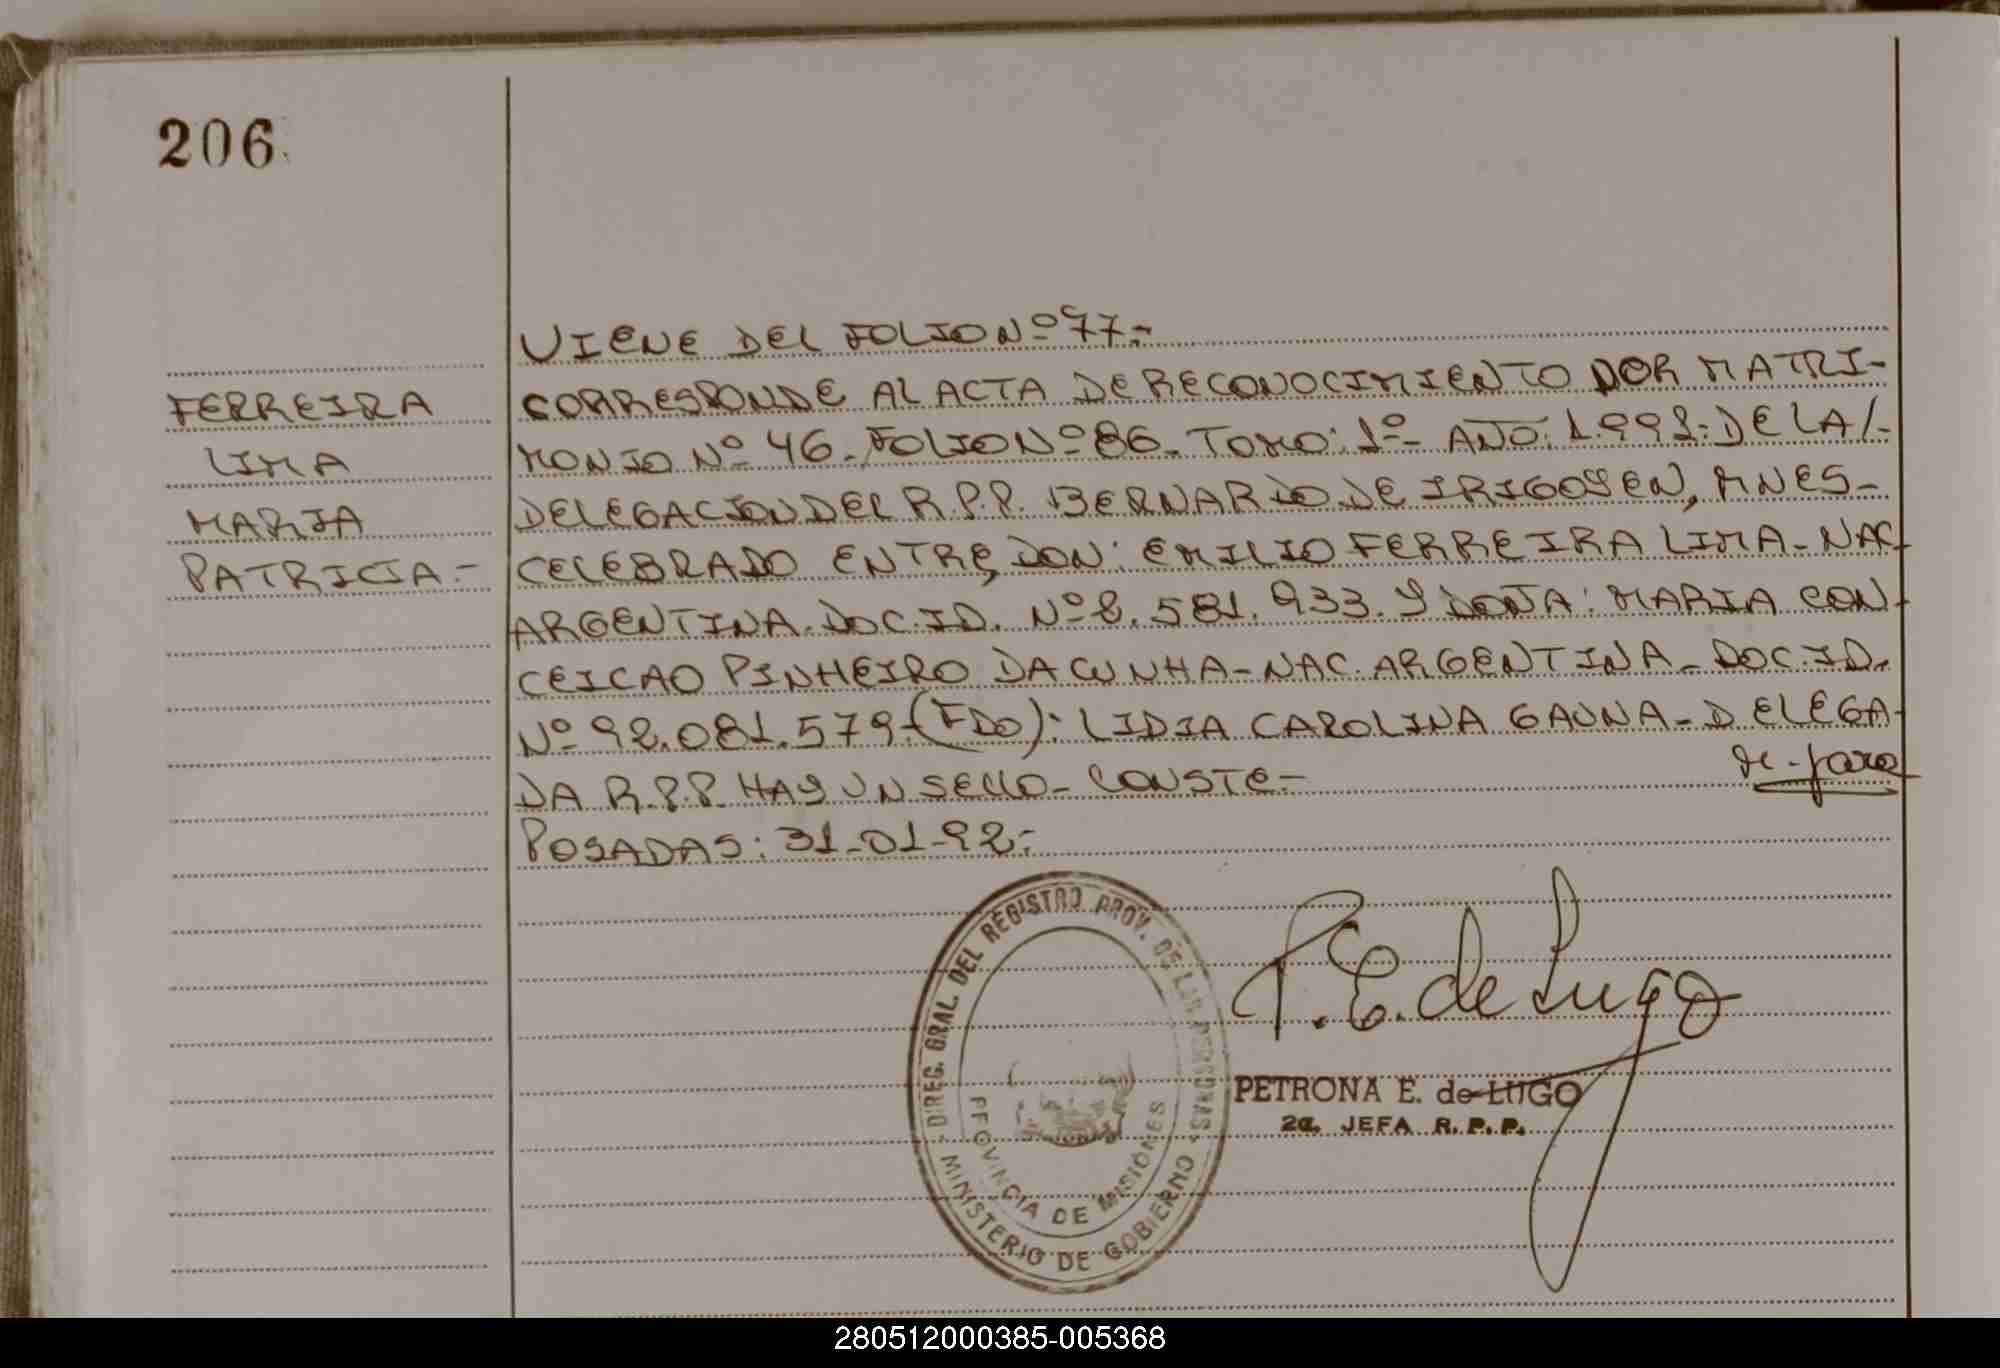 206
FERREIRA
LIMA
MARIA
PATRICIA.-
VIENE DEL FOLIO Nº 77.-
CORRESPONDE AL ACTA DE RECONOCIMIENTO POR MATRI-
MONIO Nº 46. FOLIO Nº 86. TOMO: 1º- AÑO: 1.991- DE LA/-
DELEGACION DEL R.P.P. BERNARDO DE IRIGOYEN, MNES-
CELEBRADO ENTRE, DON: EMILIO FERREIRA LIMA- NAC.
ARGENTINA. DOC. ID. Nº 8.581.933. Y DOÑA: MARIA CON-
CEICAO PINHEIRO DA CUNHA- NAC. ARGENTINA- DOC. ID.
Nº 92.081.579- (FDO): LIDIA CAROLINA GAUNA- DELEGA-
DA R.P.P. HAY UN SELLO- CONSTE-
POSADAS: 31-01-92.-
DIREC. GRAL. DEL REGISTRO PROV. DE LAS PERSONAS
PROVINCIA DE MISIONES
MINISTERIO DE GOBIERNO
P. E. de Lugo
PETRONA E. de LUGO
2a. JEFA R. P. P.
280512000385-005368